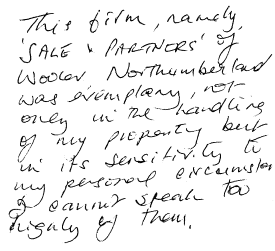 This firm, namely,
'SALE & PARTNERS' of
Wooler Northumberland
was exemplary, not
only in the handling
of my property but
in its sensitivity to
my personal circumstan
I cannot speak too
highly of them.